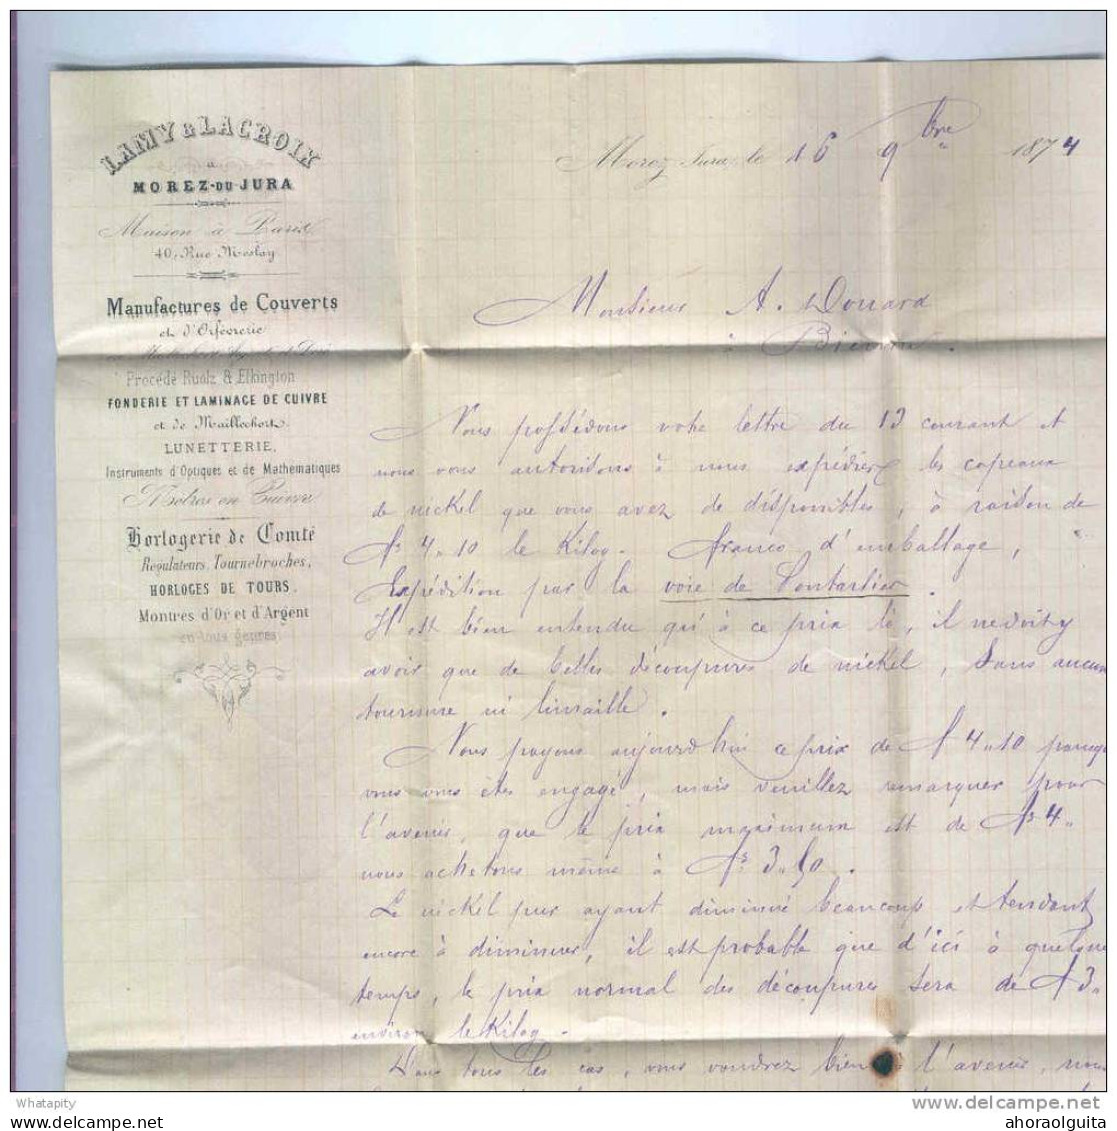 LAMY & LACROIX
à
MOREZ-DU-JURA
Maison à Paris
40, Rue Meslay
Manufactures de Couverts
et d'Orfèvrerie
Procédé Ruolz & Elkington
FONDERIE ET LAMINAGE DE CUIVRE
et de Maillechort.
LUNETTERIE,
Instruments d'Optiques et de Mathématiques
Mètres en Cuivre
Horlogerie de Comté
Régulateurs, Tournebroches,
HORLOGES DE TOURS.
Montres d'Or et d'Argent
en tous genres.
Morez-Jura, le 16 9bre 1874
Monsieur A. Donard
à Bienne.
Nous possédons votre lettre du 13 courant et
nous vous autorisons à nous expédier les copeaux
de nickel que vous avez de disponibles, à raison de
frs 4.10 le Kilog. franco d'emballage,
Expédition par la voie de Pontarlier.
Il est bien entendu qu'à ce prix là, il ne doit y
avoir que de belles découpures de nickel, sans aucune
tournure ni limaille.
Nous payons aujourd'hui ce prix de f 4.10 parceque
vous vous êtes engagé, mais veuillez remarquer pour
l'avenir, que le prix maximum est de frs 4.
nous achetons même à frs 3.50.
Le nickel pur ayant diminué beaucoup et tendant
encore à diminuer, il est probable que d'ici à quelque
temps, le prix normal des découpures sera de f 3.
environ le Kilog.
Dans tous les cas, vous voudrez bien à l'avenir, nous
Whatapity
delcampe.net
ahoraolguita